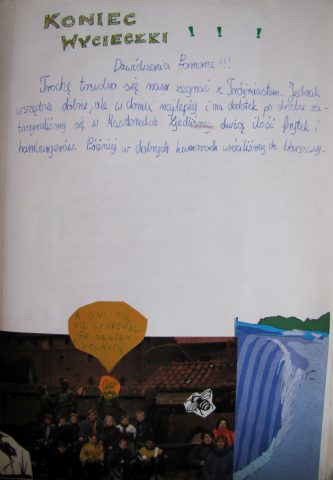 KONIEC
WYCIECZKI ! ! ! !
Dowidzenia Pomorze!!!
Trochę trudno się nam żegnać z Trójmiastem. Jednak
wszędzie dobrze, ale w domu najlepiej i na dodatek po drodze za-
trzymaliśmy się w Macdonalds. Zjedliśmy dużą ilość frytek i
hamburgerów. Później w dobrych humorach wróciliśmy do Warszawy.
A ONI SIĘ
NIE SKAPOWALI
ŻE JESTEM